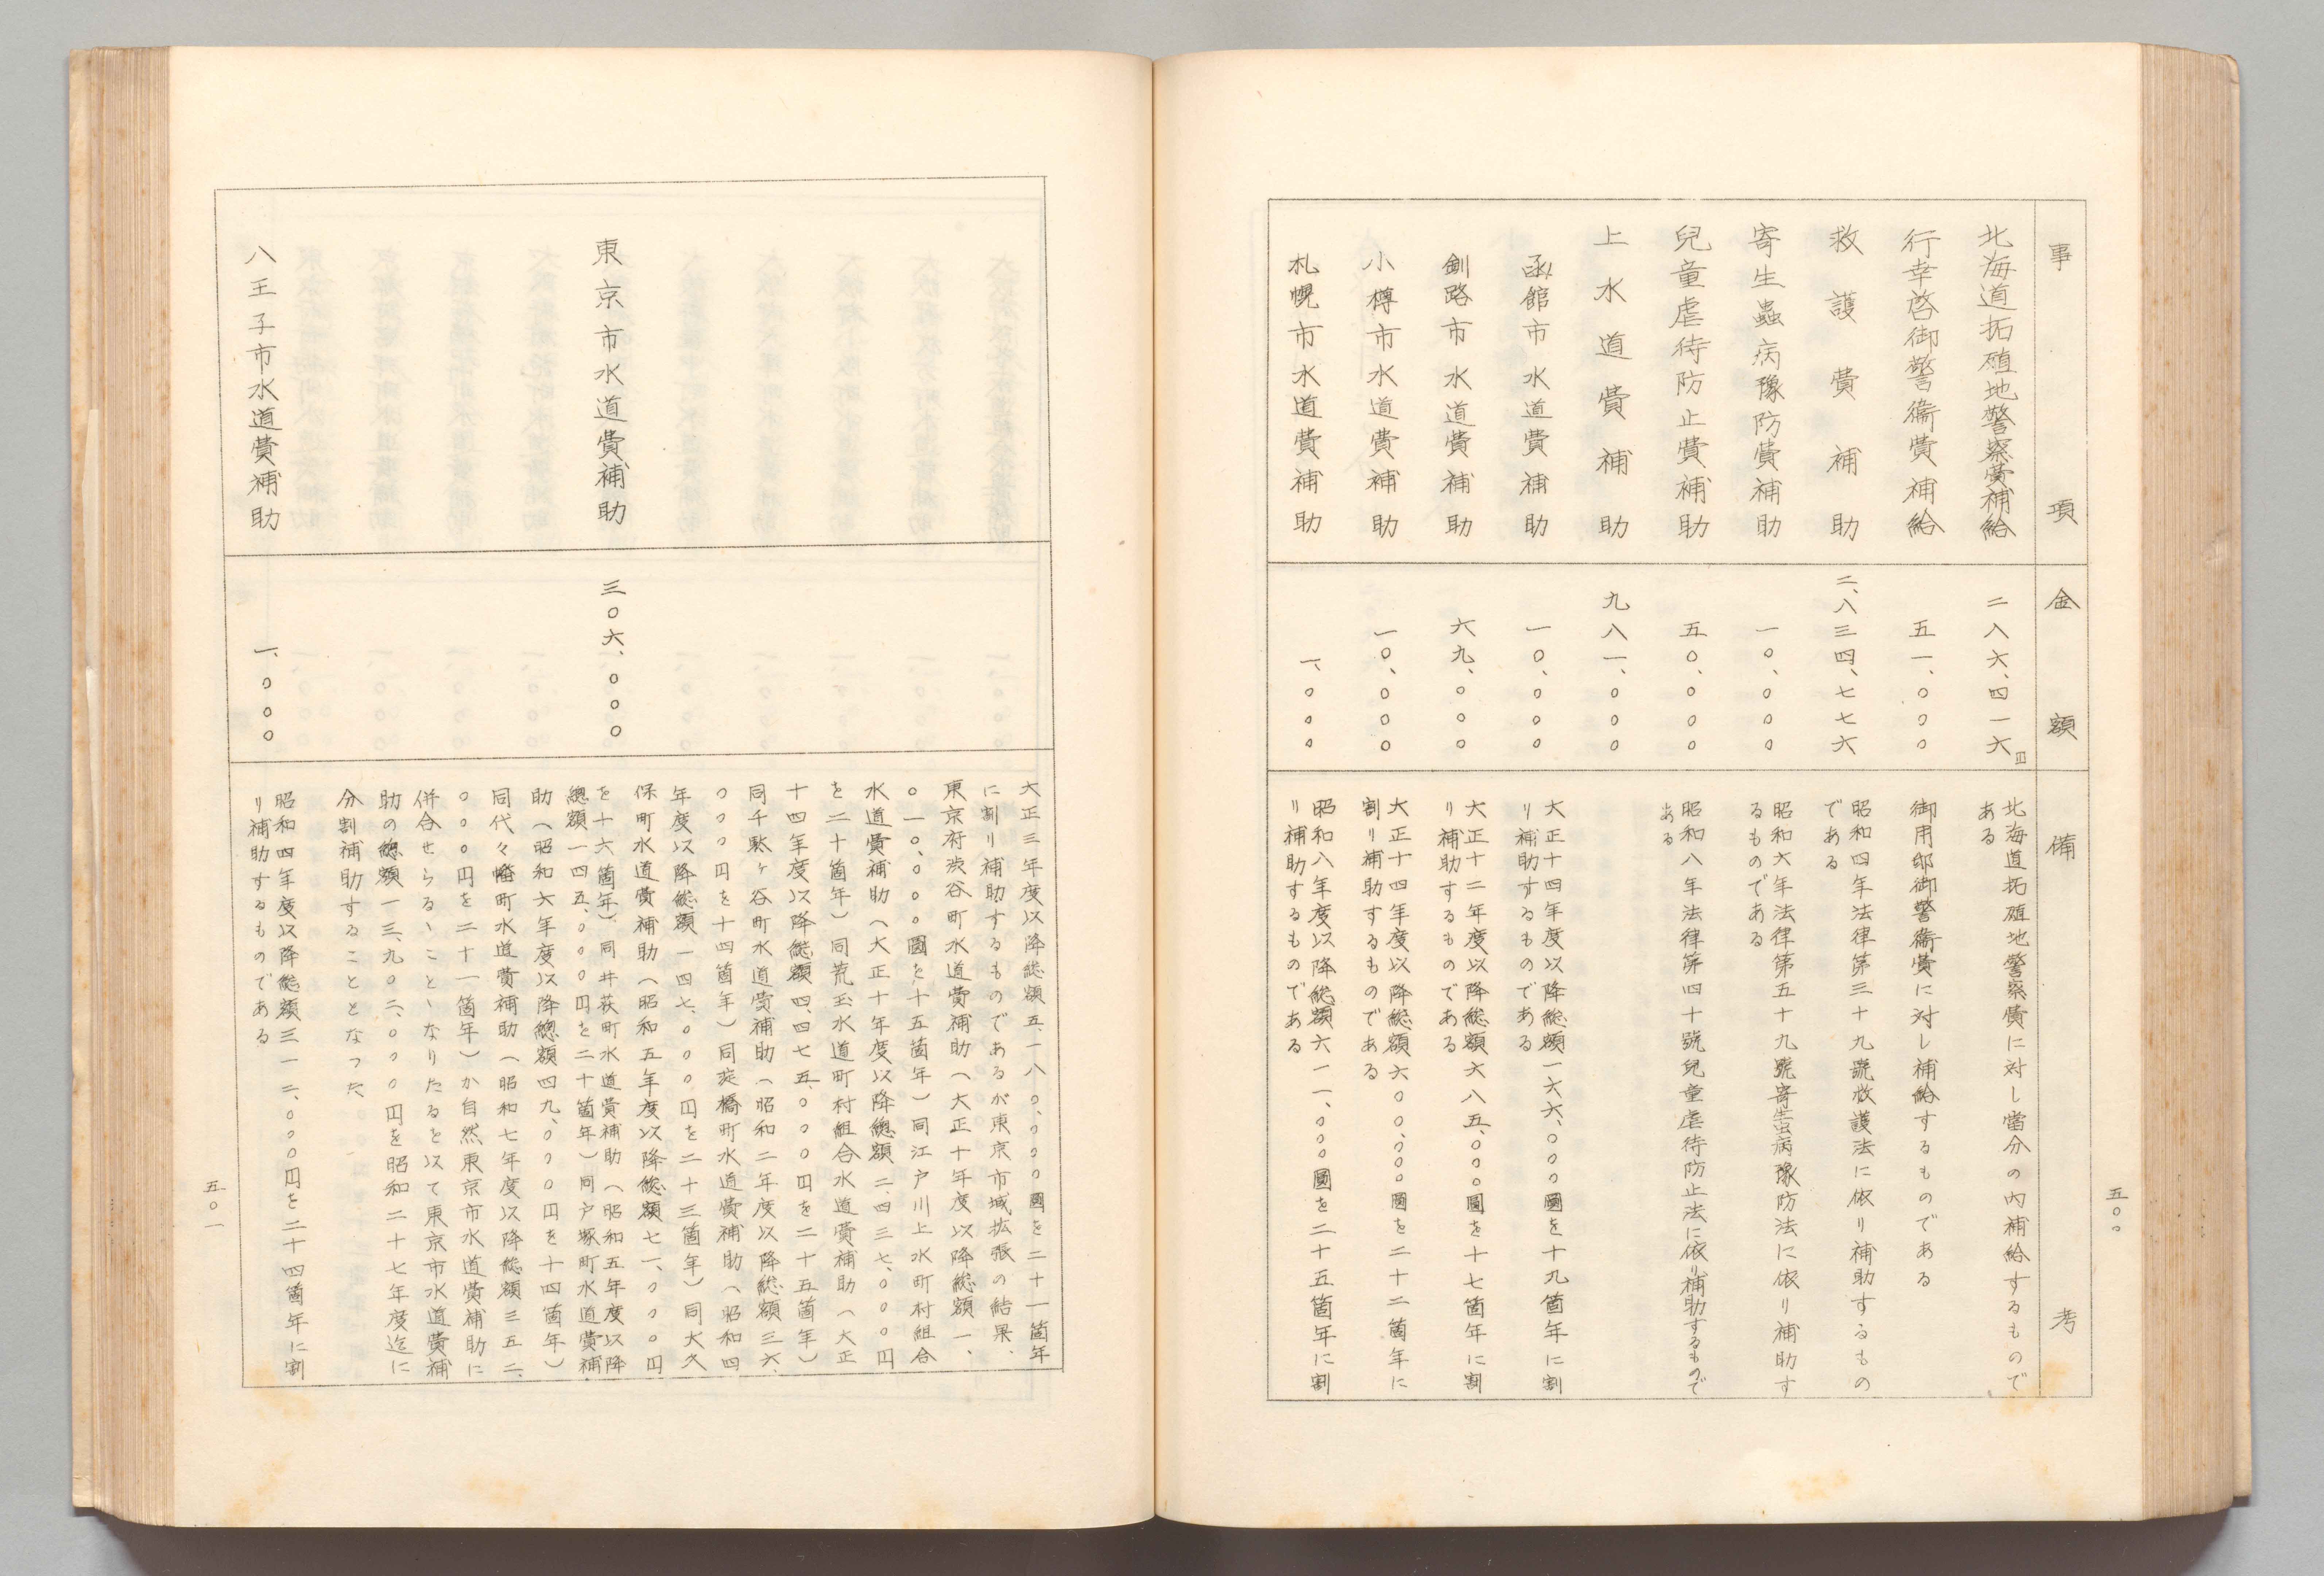 事項
金額
備考
北海道拓殖地警察費補給
二八六、四一六円
北海道拓殖地警察費に対し當分の內補給するもので
ある
行幸啓御警衞費補給
五一、〇〇〇
御用邸御警衞費に対し補給するものである
救護費補助
二、八三四、七七六
昭和四年法律第三十九號救護法に依り補助するもの
である
寄生蟲病豫防費補助
一〇、〇〇〇
昭和六年法律第五十九號寄生虫病豫防法に依り補助す
るものである
兒童虐待防止費補助
五〇、〇〇〇
昭和八年法律第四十號兒童虐待防止法に依り補助するもので
ある
上水道費補助
九八一、〇〇〇
函館市水道費補助
一〇、〇〇〇
大正十四年度以降総額一六六、〇〇〇圓を十九箇年に割
り補助するものである
釧路市水道費補助
六九、〇〇〇
大正十二年度以降総額六八五、〇〇〇圓を十七箇年に割
り補助するものである
小樽市水道費補助
一〇、〇〇〇
大正十四年度以降総額六〇〇、〇〇〇圓を二十二箇年に
割り補助するものである
札幌市水道費補助
一、〇〇〇
昭和八年度以降総額六一一、〇〇〇圓を二十五箇年に割
り補助するものである
五〇〇
東京市水道費補助
三〇六、〇〇〇
大正三年度以降総額五、一八〇、〇〇〇圓を二十一箇年
に割り補助するものであるが東京市域拡張の結果、
東京府渋谷町水道費補助（大正十年度以降総額一、
〇一〇、〇〇〇圓を十五箇年）同江戸川上水町村組合
水道費補助（大正十年度以降總額二、四三七、〇〇〇円
を二十箇年）同荒玉水道町村組合水道費補助（大正
十四年度以降総額四、四七五、〇〇〇円を二十五箇年）
同千駄ヶ谷町水道費補助（昭和二年度以降総額三六、
〇〇〇円を十四箇年）同淀橋町水道費補助（昭和四
年度以降総額一四七、〇〇〇円を二十三箇年）同大久
保町水道費補助（昭和五年度以降総額七一、〇〇〇円
を十六箇年）同井荻町水道費補助（昭和五年度以降
總額一四五、〇〇〇円を二十箇年）同戸塚町水道費補
助（昭和六年度以降總額四九、〇〇〇円を十四箇年）
同代々幡町水道費補助（昭和七年度以降総額三五二、
〇〇〇円を二十一箇年）か自然東京市水道費補助に
併合せらるゝことゝなりたるを以て東京市水道費補
助の總額一三、九〇二、〇〇〇円を昭和二十七年度迄に
分割補助することとなつた
八王子市水道費補助
一、〇〇〇
昭和四年度以降総額三一二、〇〇〇円を二十四箇年に割
り補助するものである
五〇一